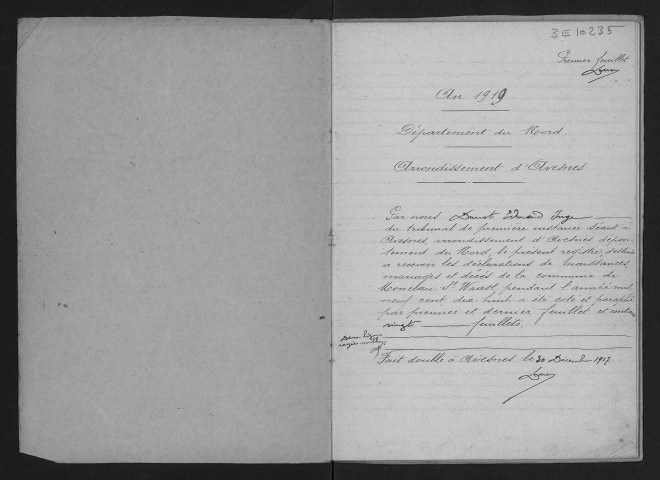 3E10235
Premier feuillet
An 1919
Département du Nord.
Arrondissement d'Avesnes
Par nous Edmond Juge
du tribunal de première instance séant à
Avesnes, arrondissement d'Avesnes dépar-
tement du Nord, le présent registre, destiné
a recevoir les déclarations de naissances,
mariages et décès de la commune de
Monceau St Waast, pendant l'année mil
neuf cent dix huit a été coté et paraphé
par premier et dernier feuillet et contient
vingt feuillets.
Fait double à Avesnes le 30 Décembre 1917